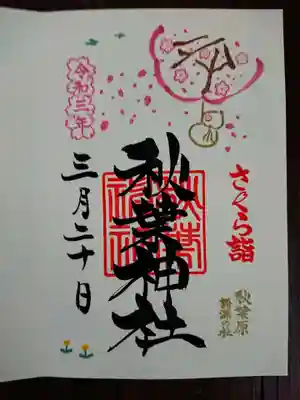 さくら詣
秋葉神社
秋葉神社
令和三年
三月二十日
秋葉原